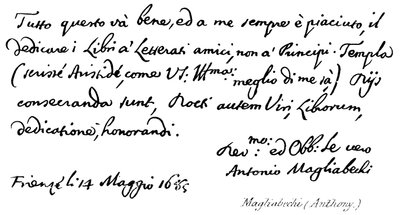 Tutto questo và bene, ed a me sempre è piaciuto, il
dedicare i Libri a' Letterati amici, non a' Principi. Templa
(scrisse Aristide, come VS: Ill.ma: meglio di me sà) Dijs
consecranda sunt, Docti autem Viri, Librorum,
dedicatione, honorandi.
Dev.mo: ed Obb: Se vero
Antonio Magliabechi
Firenze li 14 Maggio
Magliabechi (Anthony.)